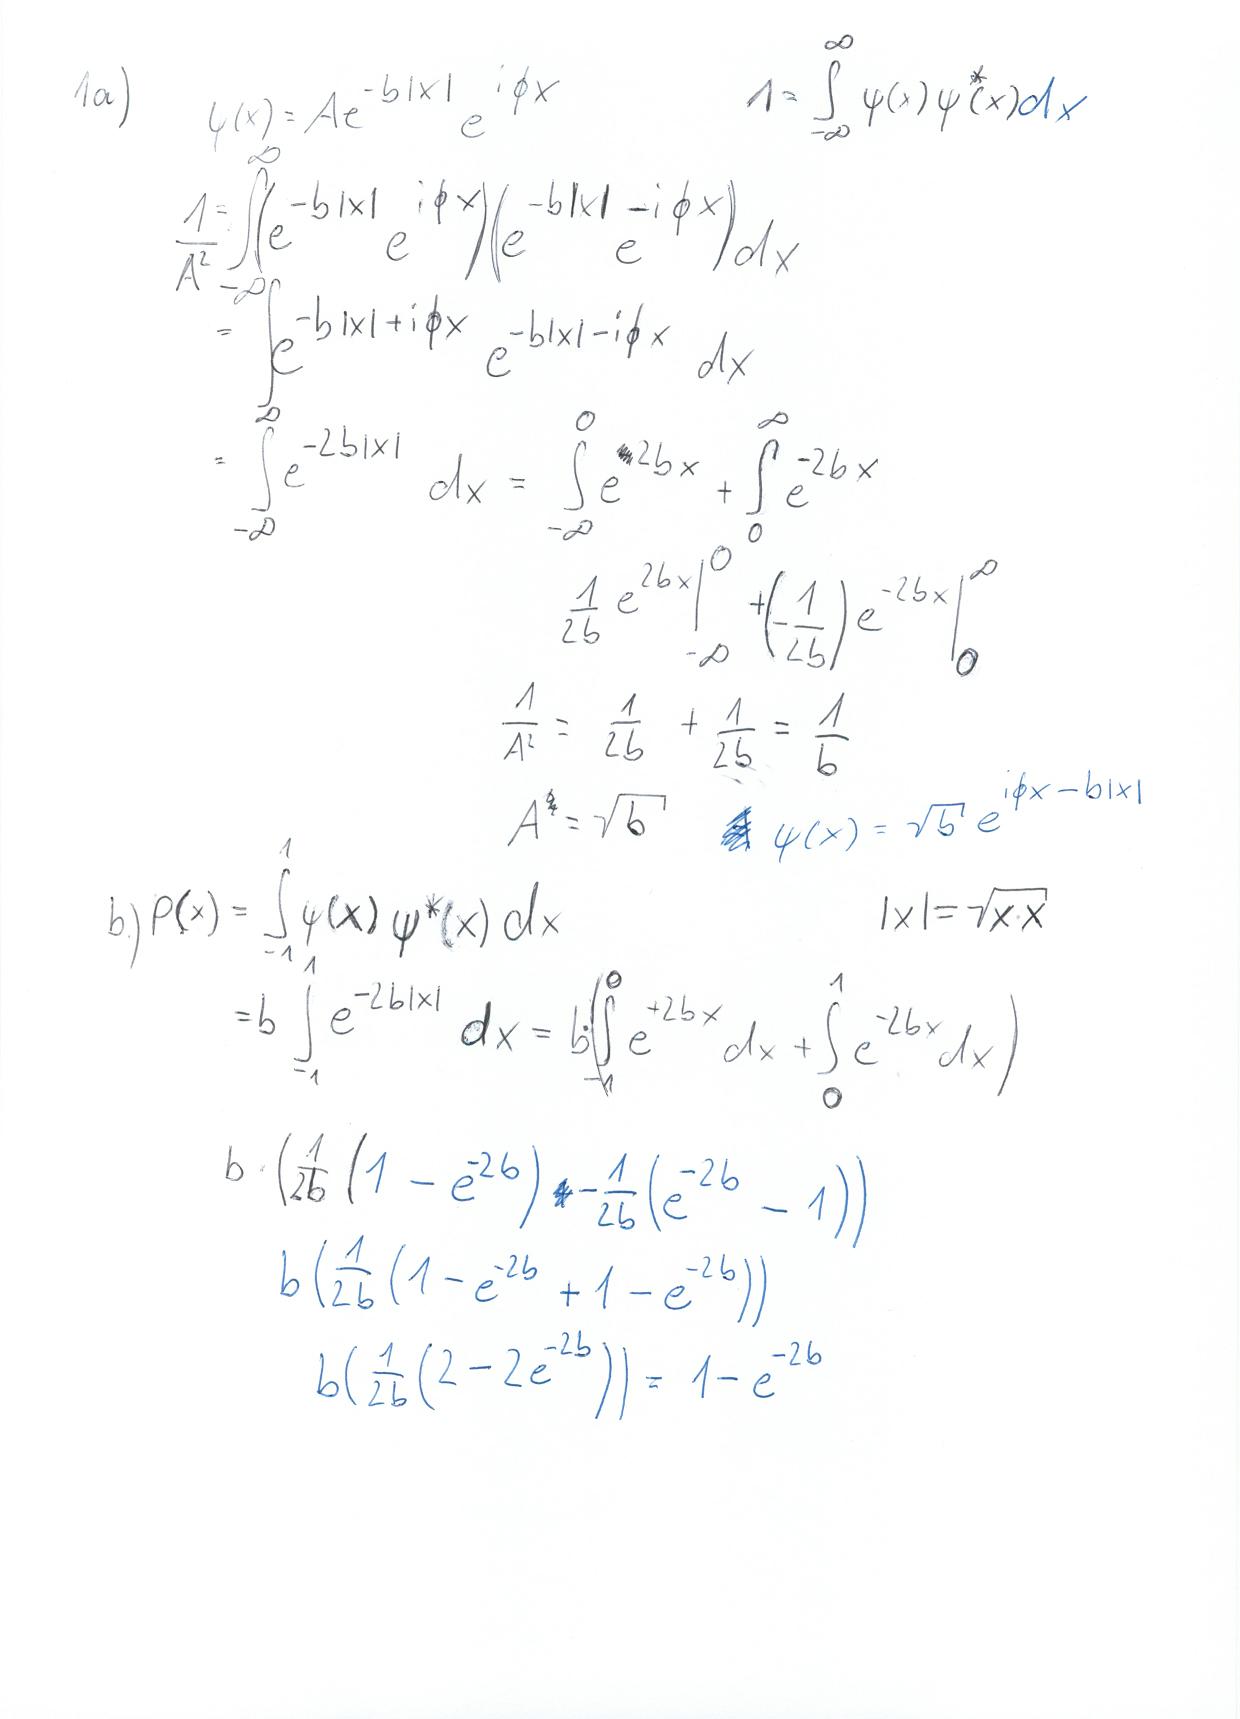 1a) ψ(x) = Ae^{-b|x|} e^{iϕx} 1 = ∫_{-∞}^{∞} ψ(x) ψ*(x) dx
1/A² = ∫_{-∞}^{∞} (e^{-b|x|} e^{iϕx})(e^{-b|x|} e^{-iϕx}) dx
= ∫ e^{-b|x|+iϕx} e^{-b|x|-iϕx} dx
= ∫_{-∞}^{∞} e^{-2b|x|} dx = ∫_{-∞}^{0} e^{2bx} + ∫_{0}^{∞} e^{-2bx}
1/2b e^{2bx} |_{-∞}^{0} + (-1/2b) e^{-2bx} |_{0}^{∞}
1/A² = 1/2b + 1/2b = 1/b
A = √b ψ(x) = √b e^{iϕx-b|x|}
b.) P(x) = ∫_{-1}^{1} ψ(x) ψ*(x) dx |x| = √x·x
= b ∫_{-1}^{1} e^{-2b|x|} dx = b·(∫_{-1}^{0} e^{+2bx} dx + ∫_{0}^{1} e^{-2bx} dx)
b · (1/2b (1 - e^{-2b}) - 1/2b (e^{-2b} - 1))
b(1/2b (1 - e^{-2b} + 1 - e^{-2b}))
b(1/2b (2 - 2e^{-2b})) = 1 - e^{-2b}